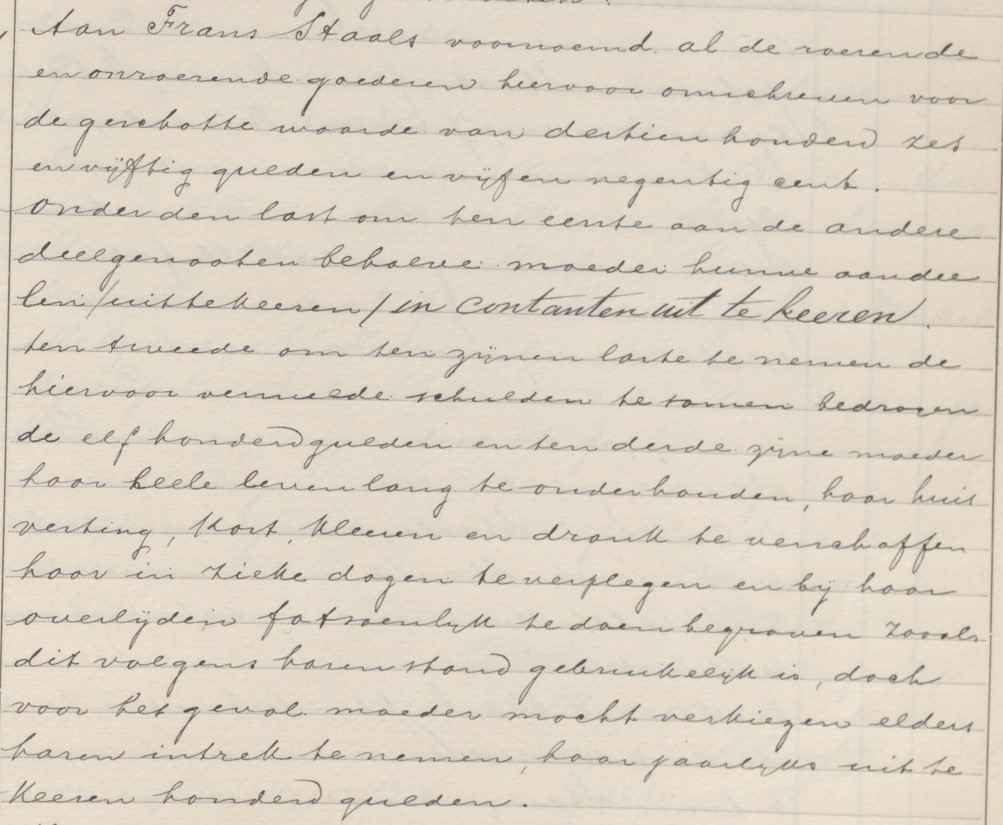 Aan Frans Staals voornoemd al de roerende
en onroerende goederen hiervoor omschreven voor
de geschatte waarde van dertien honderd zes
en vijftig gulden en vijf en negentig cent.
onder den last om ten eerste aan de andere
deelgenooten behalve moeder hunne aandee
len /uittekeeren/ in contanten uit te keeren.
ten tweede om ten zijnen laste te nemen de
hiervoor vermelde schulden te samen bedragen
de elf honderd gulden en ten derde zijne moeder
haar heele leven lang te onderhouden, haar huis
vesting, kost, kleeren en drank te verschaffen
haar in zieke dagen te verplegen en bij haar
overlijden fatsoenlijk te doen begraven zooals
dit volgens haren stand gebruikelijk is, doch
voor het geval moeder mocht verkiezen elders
haren intrek te nemen, haar jaarlijks uit te
keeren honderd gulden.